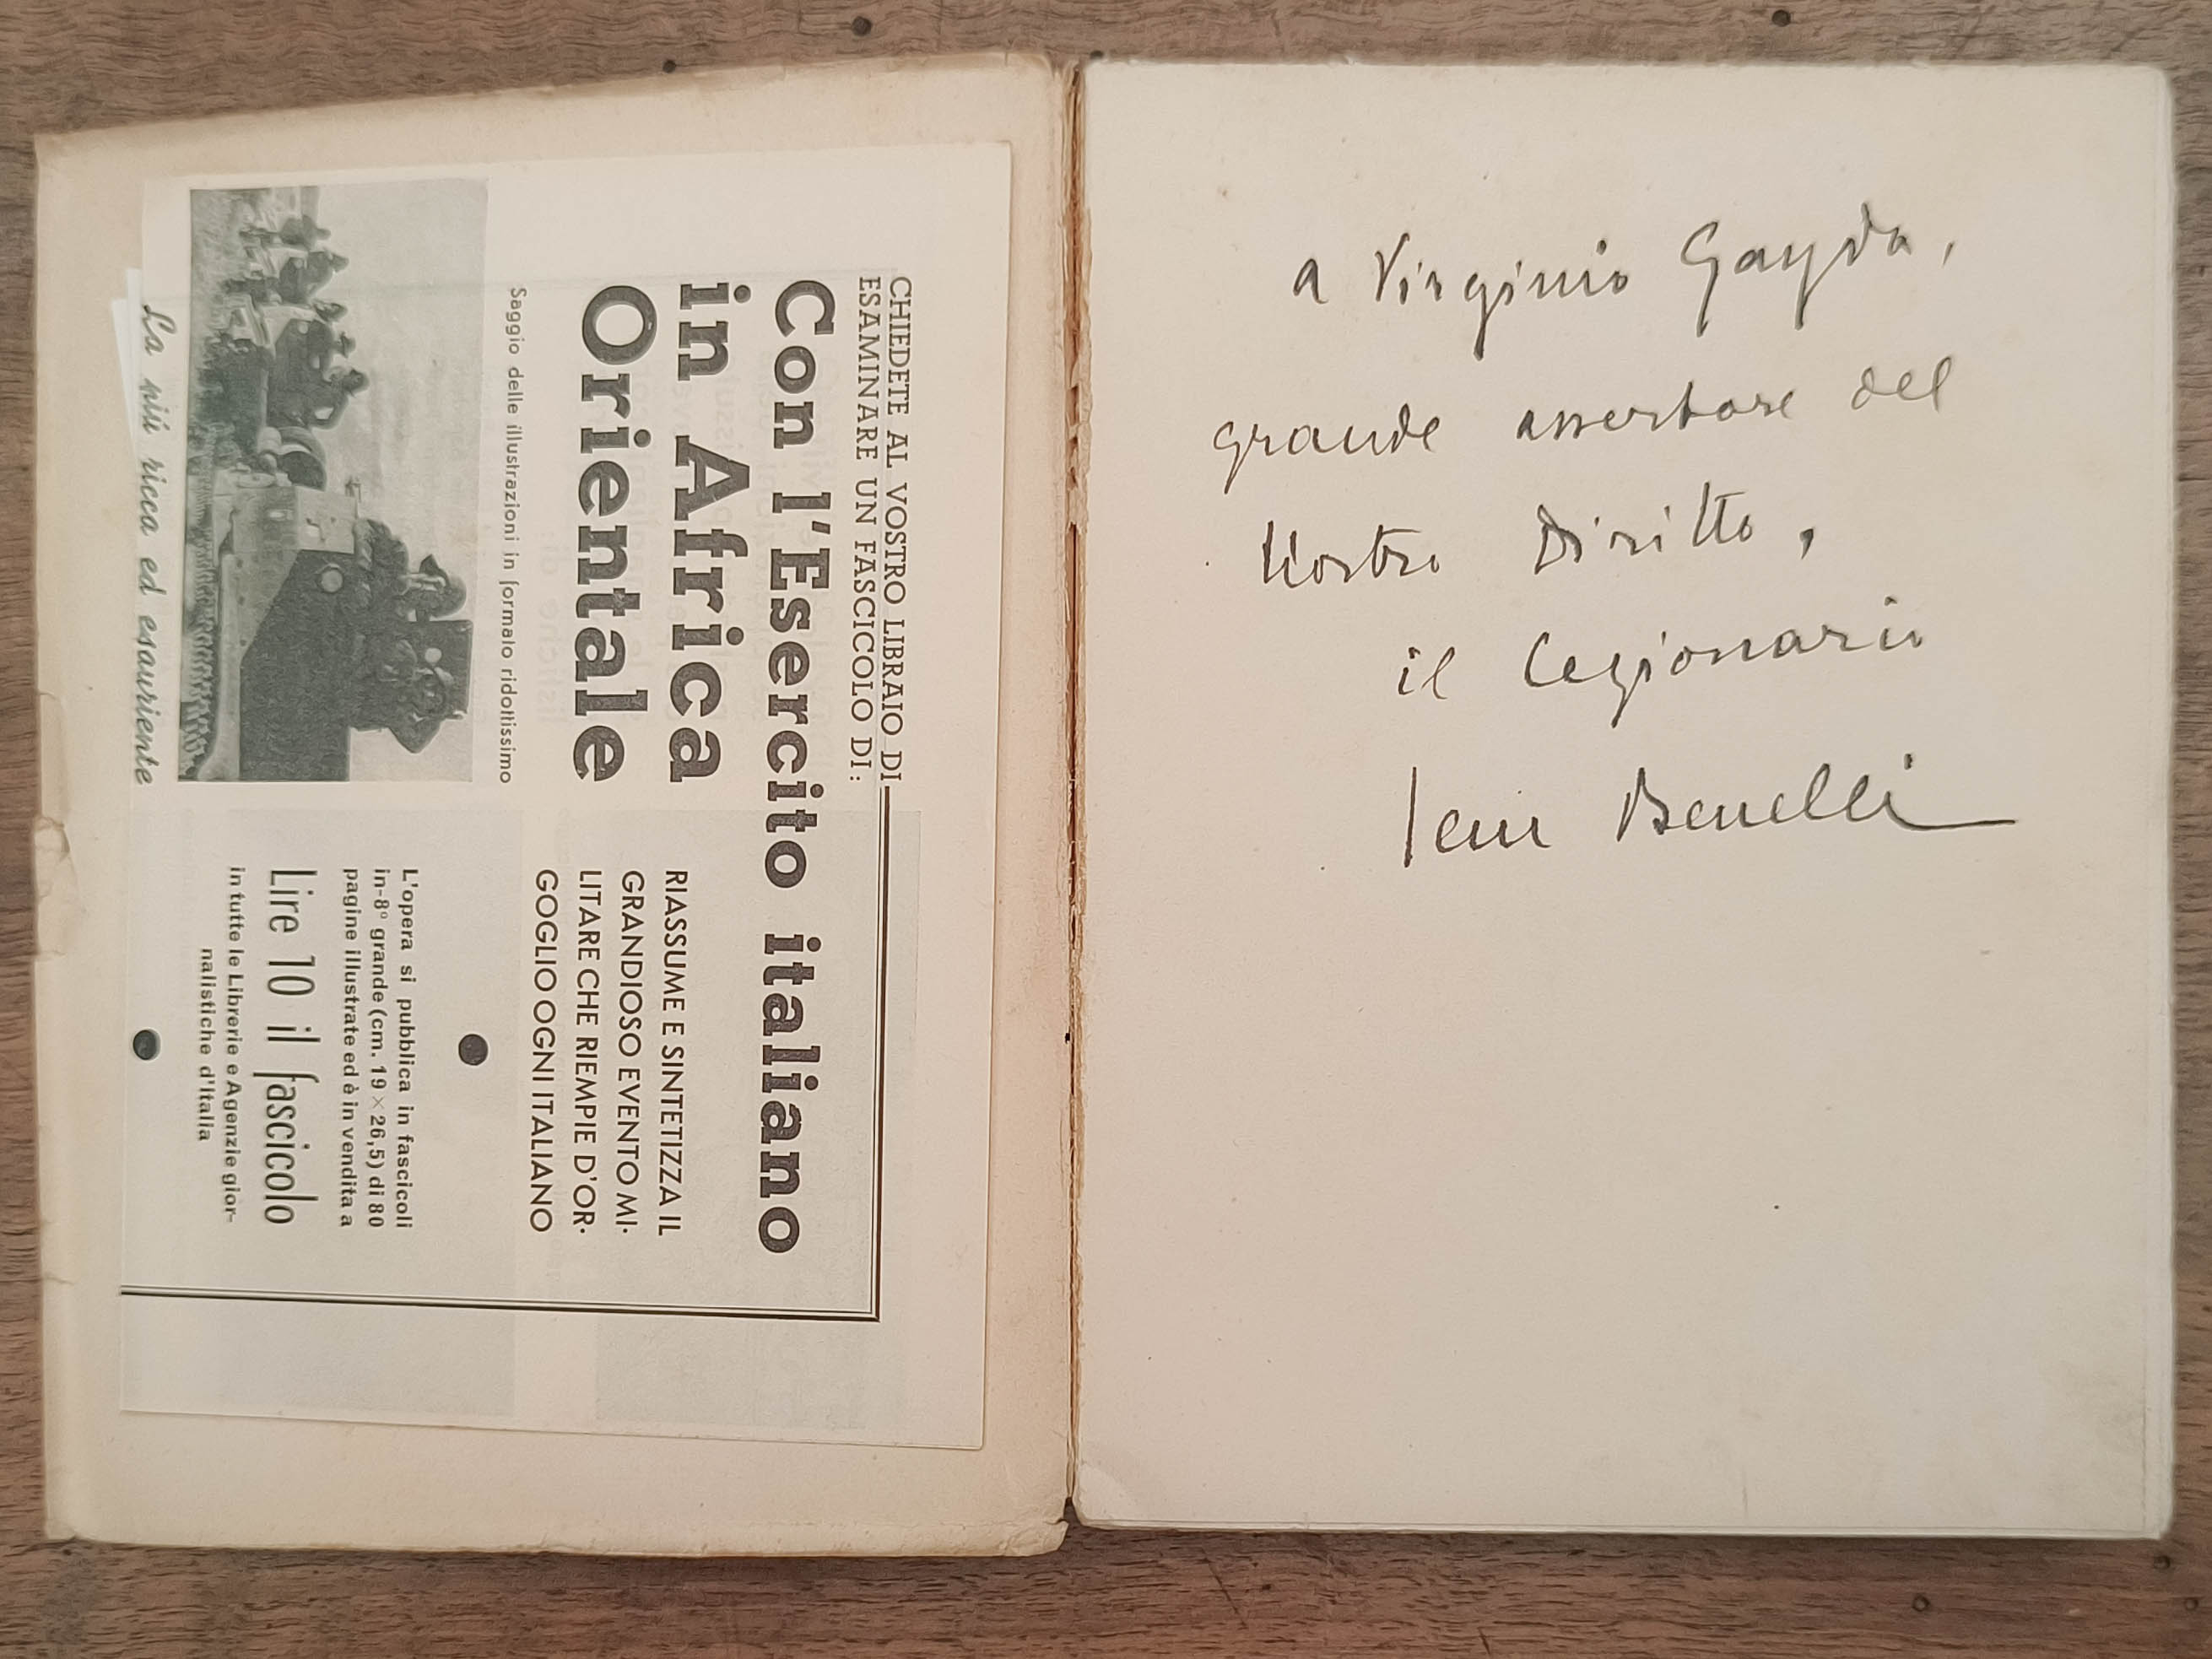 CHIEDETE AL VOSTRO LIBRAIO DI
ESAMINARE UN FASCICOLO DI:
Con l'Esercito italiano
in Africa
Orientale
Saggio delle illustrazioni in formato ridottissimo
La più ricca ed esauriente
RIASSUME E SINTETIZZA IL
GRANDIOSO EVENTO MI-
LITARE CHE RIEMPIE D'OR-
GOGLIO OGNI ITALIANO
L'opera si pubblica in fascicoli
in-8° grande (cm. 19 × 26,5) di 80
pagine illustrate ed è in vendita a
Lire 10 il fascicolo
in tutte le Librerie e Agenzie gior-
nalistiche d'Italia
a Virginio Gayda,
grande assertore del
Nostro Diritto,
il Legionario
Sem Benelli